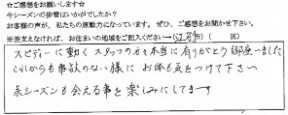 ☆ご感想をお願いします☆
今シーズンの排雪はいかがでしたか？
お客様の声が、私たちの原動力になっています。ぜひ、ご感想をお聞かせ下さい。
※差支えなければ、お住まいの地域をご記入ください→（江別市）（　　区）
スピーディーに動くスタッフの方々本当に有りがとう御座いました
これからも事故のない様に お体も気をつけて下さい
来シーズンも会える事を楽しみにしてます